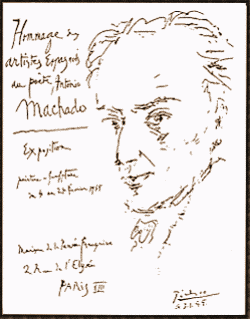 Hommage des
artistes Espagnols
au poète Antonio
Machado
Exposition
peinture - sculpture
du 4 au 27 février 1955
Maison de la Pensée Française
2 Rue de l'Elysée
PARIS VIII
Picasso